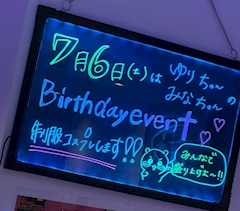 7月6日(土)は ゆりちゃんの
みなちゃんの
Birthday event
制服コスプレします!!
みんなで
盛り上すよ〜!!